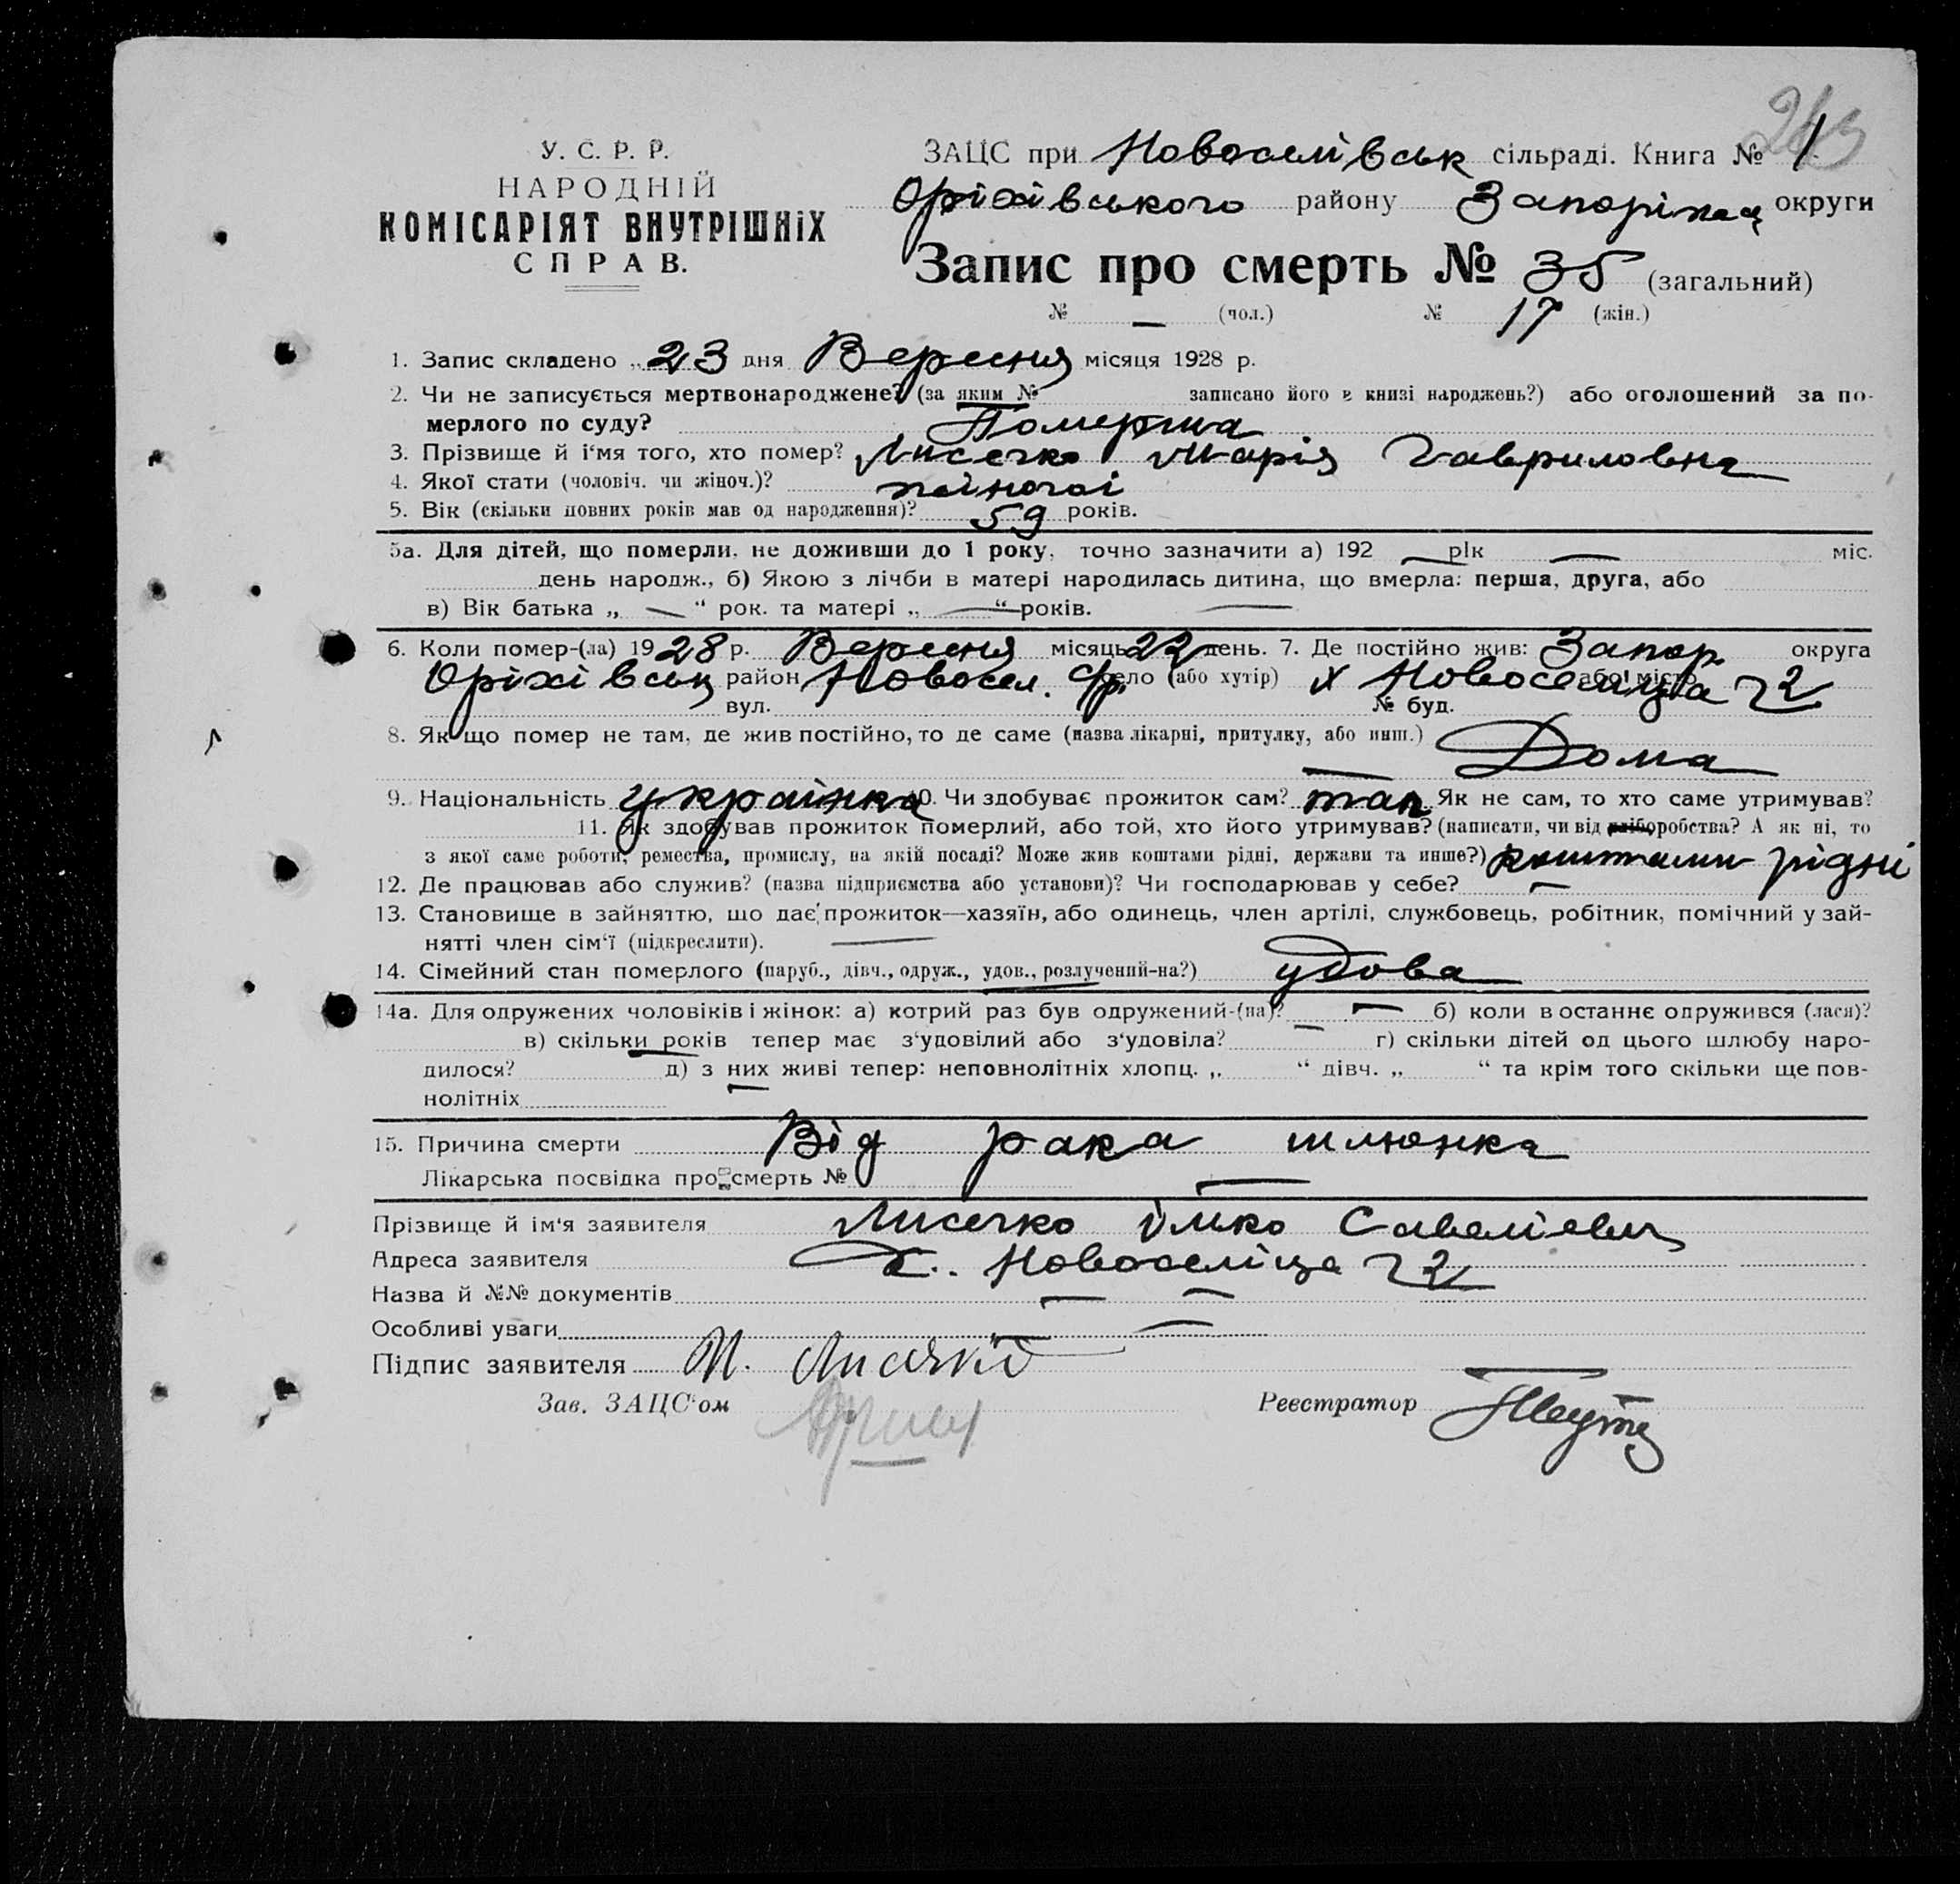 243
У. С. Р. Р.
НАРОДНІЙ
КОМІСАРІЯТ ВНУТРІШНІХ
СПРАВ.
ЗАЦС при Новоселівськ сільраді. Книга № 1
Оріхівського району Запоріжац округи
Запис про смерть № 35 (загальний)
№ — (чол.) № 17 (жін.)
1. Запис складено „ 23 дня Вересня місяця 1928 р.
2. Чи не записується мертвонароджене? (за яким № записано його в книзі народжень?) або оголошений за по-
мерлого по суду? Померша
3. Прізвище й і‘мя того, хто помер? Лисечко Марія Гавриловна
4. Якої статі (чоловіч. чи жіноч.)? жіночоі
5. Вік (скільки повних років мав од народження)? 59 років.
5а. Для дітей, що померли, не доживши до 1 року, точно зазначити а) 192 — рік — міс.
день народж., б) Якою з лічби в матері народилась дитина, що вмерла: перша, друга, або
в) Вік батька „ — “ рок. та матері „ — “ років. —
6. Коли помер-(ла) 1928 р. Вересня місяць 22 день. 7. Де постійно жив: Запор. округа
Оріхівськ район Новосел. с/р. село (або хутір) х Новоселиця або місто 72
вул. № буд.
8. Якщо помер не там, де жив постійно, то де саме (назва лікарні, притулку, або инш.) Дома
—
9. Національність українка 10. Чи здобуває прожиток сам? так Як не сам, то хто саме утримував?
11. Як здобував прожиток померлий, або той, хто його утримував? (написати, чи від хліборобства? А як ні, то
з якої саме роботи, ремества, промислу, на якій посаді? Може жив коштами рідні, держави та инше?) коштами рідні
12. Де працював або служив? (назва підприємства або установи)? Чи господарював у себе? —
13. Становище в зайняттю, що дає прожиток—хазяїн, або одинець, член артілі, службовець, робітник, помічний у зай-
нятті член сім‘ї (підкреслити). —
14. Сімейний стан померлого (паруб., дівч., одруж., удов., розлучений-на?) удова
14а. Для одружених чоловіків і жінок: а) котрий раз був одружений-(на)? — б) коли в останнє одружився (лася)?
в) скільки років тепер має з‘удовілий або з‘удовіла? — г) скільки дітей од цього шлюбу наро-
дилося? д) з них живі тепер: неповнолітніх хлопц. „ “ дівч. „ “ та крім того скільки ще пов-
нолітніх
15. Причина смерти Від рака шлюнка
Лікарська посвідка про смерть № —
Прізвище й ім‘я заявителя Лисечко Ілько Савелієвич
Адреса заявителя х. Новоселіца 72
Назва й №№ документів — —
Особливі уваги — —
Підпис заявителя И. Лисечко
Зав. ЗАЦС‘ом Реєстратор